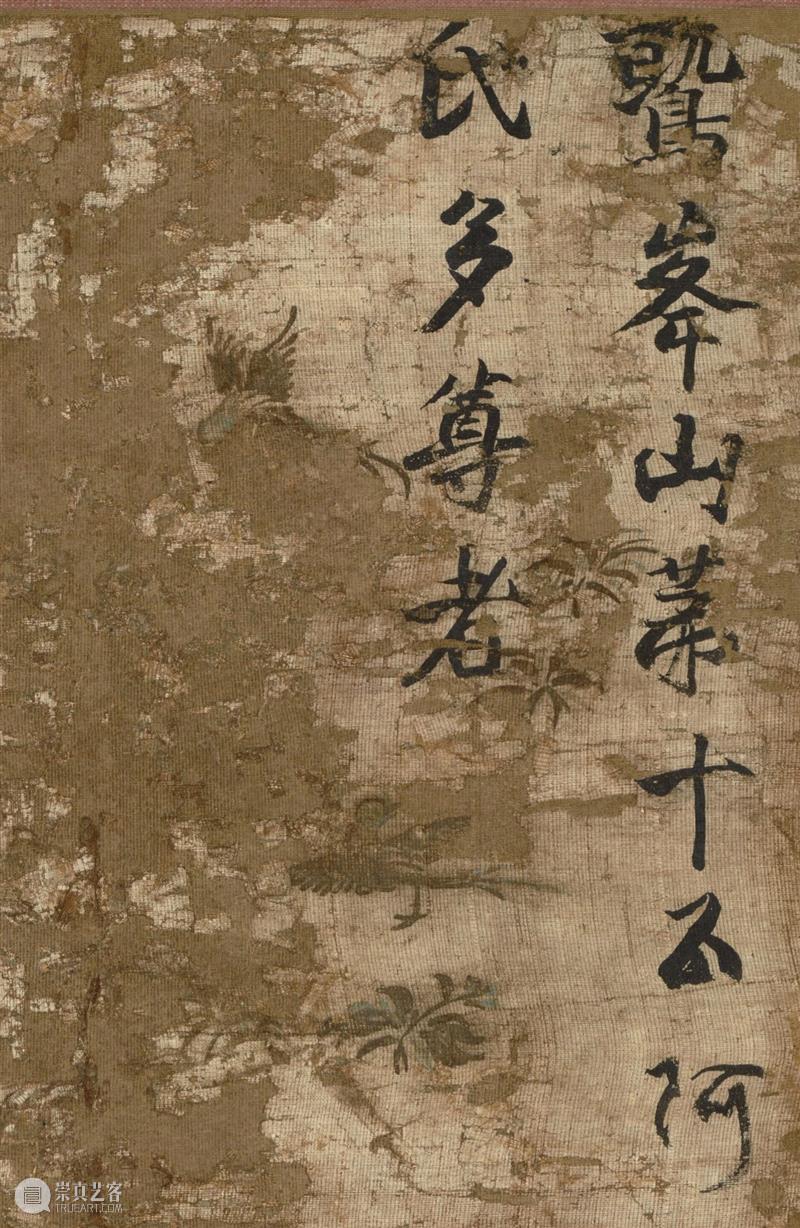 鷲峯山苐十五阿
氏多尊者
崇真艺客
TRUEART.COM